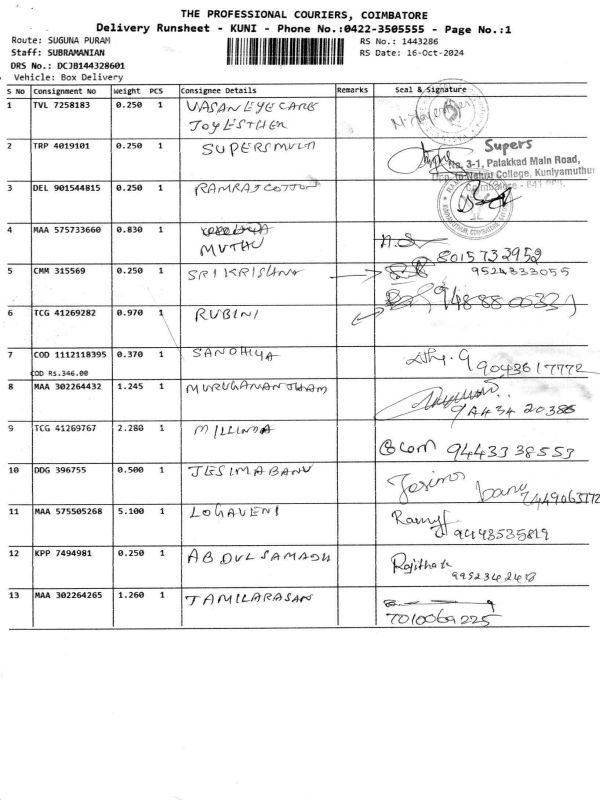 THE PROFESSIONAL COURIERS, COIMBATORE
Delivery Runsheet - KUNI - Phone No.:0422-3505555 - Page No.:1
Route: SUGUNA PURAM
RS No.: 1443286
Staff: SUBRAMANIAN
RS Date: 16-Oct-2024
DRS No.: DCJB144328601
Vehicle: Box Delivery
S No Consignment No Weight PCS Consignee Details Remarks Seal & Signature
1 TVL 7258183 0.250 1 VASAN EYE CARE
JOYLESTHER
2 TRP 4019101 0.250 1 SUPERSMULTI
Supers
No. 3-1, Palakkad Main Road,
Opp. to Nehru College, Kuniyamuthur
Coimbatore - 641
3 DEL 901544815 0.250 1 RAMRAJ COTTON
4 MAA 575733660 0.830 1
MUTHU
8015732952
5 CMM 315569 0.250 1 SRI KRISHNA 9524333055
6 TCG 41269282 0.970 1 RUBINI
7 COD 1112118395 0.370 1 SANDHIYA 9043617772
COD RS.346.00
8 MAA 302264432 1.245 1 MURUGANANTHAM
9 TCG 41269767 2.280 1 MILLINDA 9443338553
10 DDG 396755 0.500 1 JESIMABANU
banu
11 MAA 575505268 5.100 1 LOGAVENI
12 KPP 7494981 0.250 1 ABDULSAMADH
13 MAA 302264265 1.260 1 TAMILARASAN
7010069225